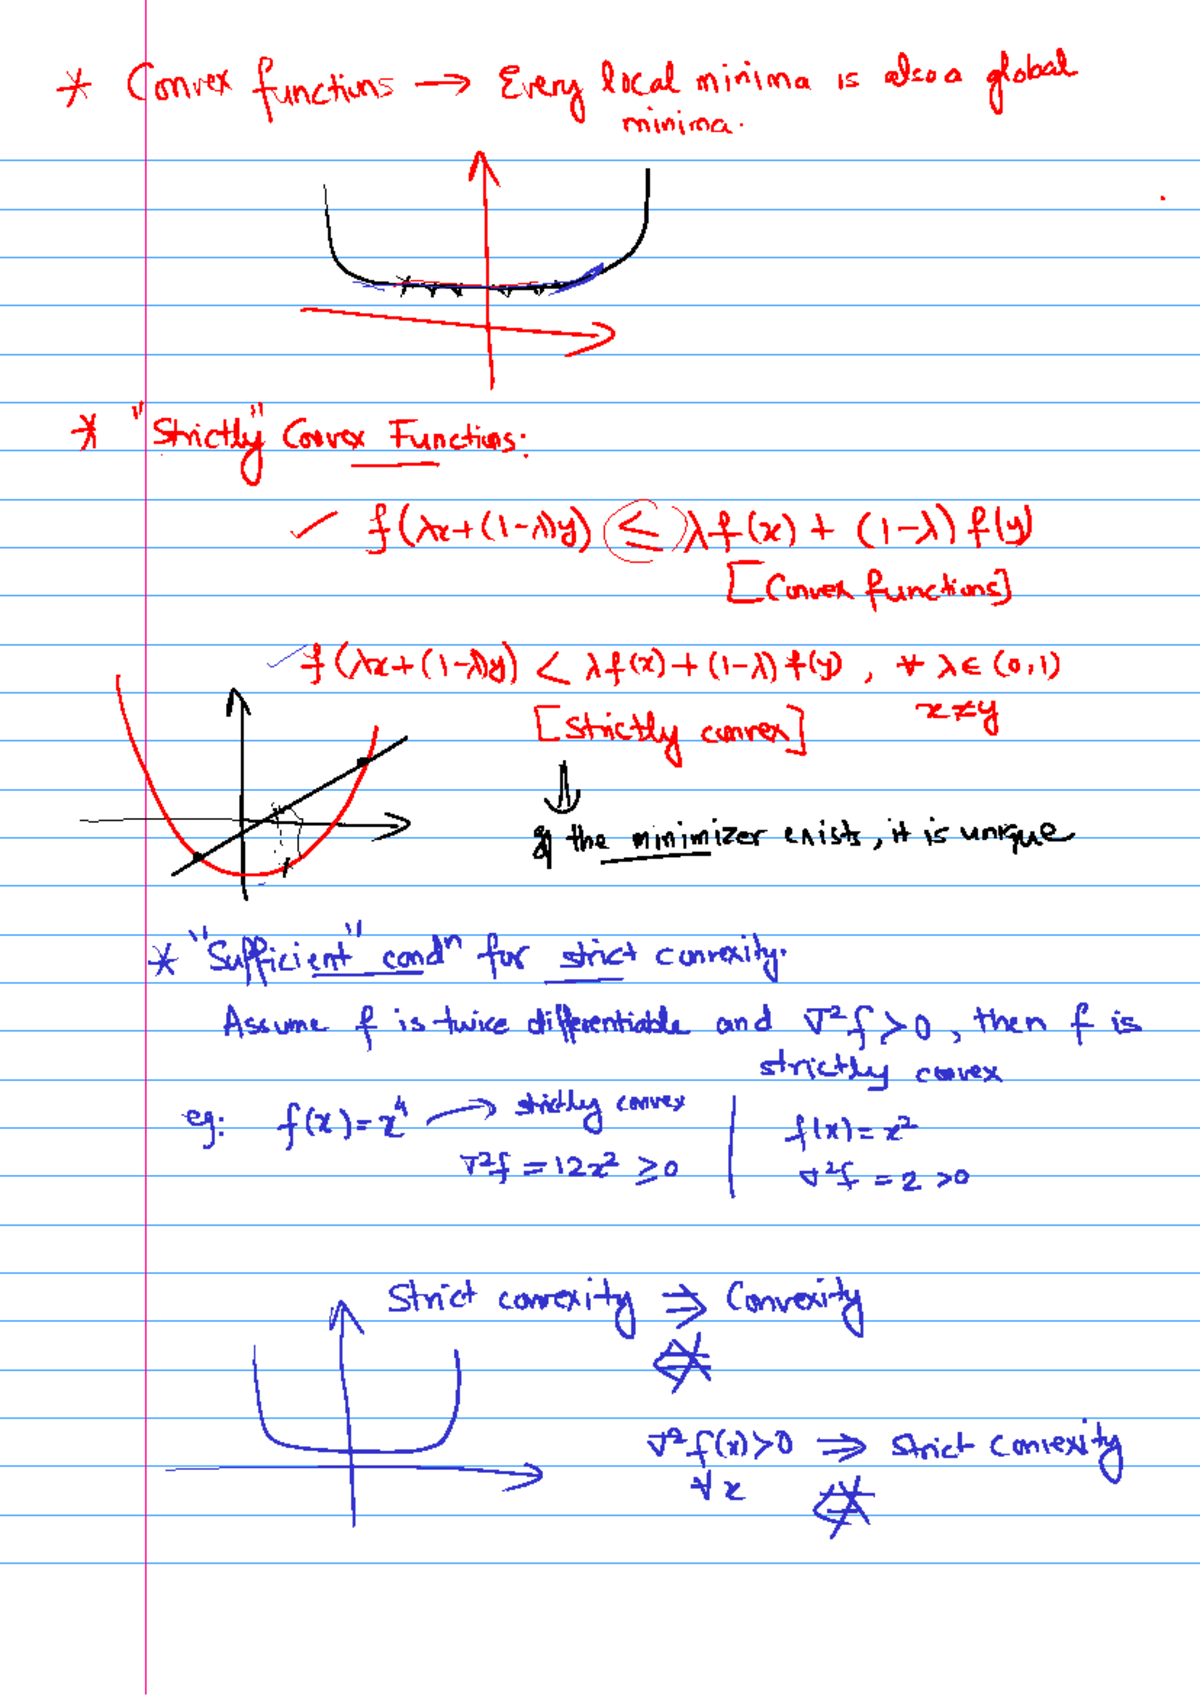 * Convex functions → Every local minima is also a global
minima.
* "Strictly" Convex Functions:
✓ f(λx+(1-λ)y) ≤ λf(x) + (1-λ) f(y)
[Convex functions]
✓ f(λx+(1-λ)y) < λf(x)+(1-λ)f(y), ∀ λ∈(0,1)
x≠y
[strictly convex]
⇓
If the minimizer exists, it is unique
* "Sufficient" condⁿ for strict convexity.
Assume f is twice differentiable and ∇²f>0, then f is
strictly convex
eg: f(x)=x⁴ → strictly convex | f(x)=x²
∇²f = 12x² ≥0 | ∇²f = 2 >0
Strict convexity ⇒ Convexity
⇍
∇²f(x)>0 ⇒ strict convexity
∀x ⇍